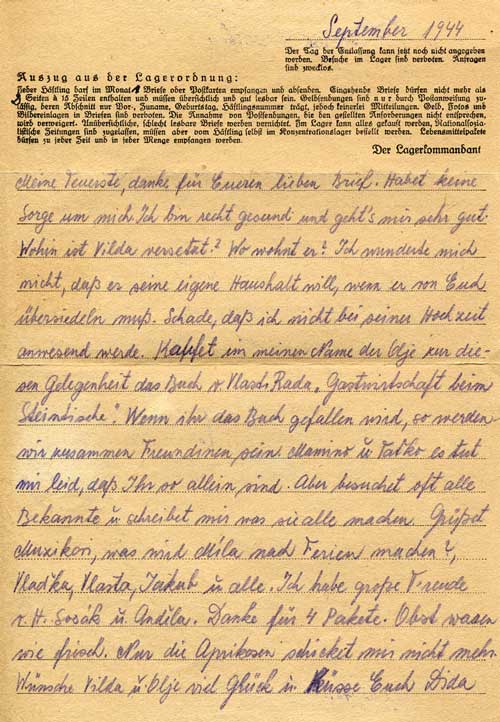 September 1944
Der Tag der Entlassung kann jetzt noch nicht angegeben
werden. Besuche im Lager sind verboten. Anfragen
sind zwecklos.
Auszug aus der Lagerordnung:
Jeder Häftling darf im Monat 1 Briefe oder Postkarten empfangen und absenden. Eingehende Briefe dürfen nicht mehr als
Seiten à 15 Zeilen enthalten und müssen übersichtlich und gut lesbar sein. Geldsendungen sind nur durch Postanweisung zu-
lässig, deren Abschnitt nur Vor-, Zuname, Geburtstag, Häftlingsnummer trägt, jedoch keinerlei Mitteilungen. Geld, Fotos und
Bildereinlagen in Briefen sind verboten. Die Annahme von Postsendungen, die den gestellten Anforderungen nicht entsprechen,
wird verweigert. Unübersichtliche, schlecht lesbare Briefe werden vernichtet. Im Lager kann alles gekauft werden. Nationalsozia-
listische Zeitungen sind zugelassen, müssen aber vom Häftling selbst im Konzentrationslager bestellt werden. Lebensmittelpakete
dürfen zu jeder Zeit und in jeder Menge empfangen werden.
Der Lagerkommandant
Meine Teuerste, danke für Eueren lieben Brief. Habet keine
Sorge um mich. Ich bin recht gesund und geht's mir sehr gut.
Wohin ist Vilda versetzt? Wo wohnt er? Ich wunderte mich
nicht, daß er seine eigene Haushalt will, wenn er von Euch
übersiedeln muß. Schade, daß ich nicht bei seiner Hochzeit
anwesend werde. Kaufet im meinen Name der Olje zur die-
sen Gelegenheit das Buch v. Vlasti Rada „Gastwirtschaft beim
Steintische". Wenn ihr das Buch gefallen wird, so werden
wir zusammen Freundinen sein. Mamino u. Taťko es tut
mir leid, daß Ihr so allein sind. Aber besuchet oft alle
Bekannte u. schreibet mir was sie alle machen. Grüßet
was wird Míla nach Ferien machen?,
Vlaďka, Vlasta, Jakub u. alle. Ich habe große Freude
v. H. Sosák u. Andila. Danke für 4 Pakete. Obst waren
wie frisch. Nur die Aprikosen schicket mir nicht mehr.
Wünsche Vilda u. Olje viel Glück u. Küsse Euch Dida